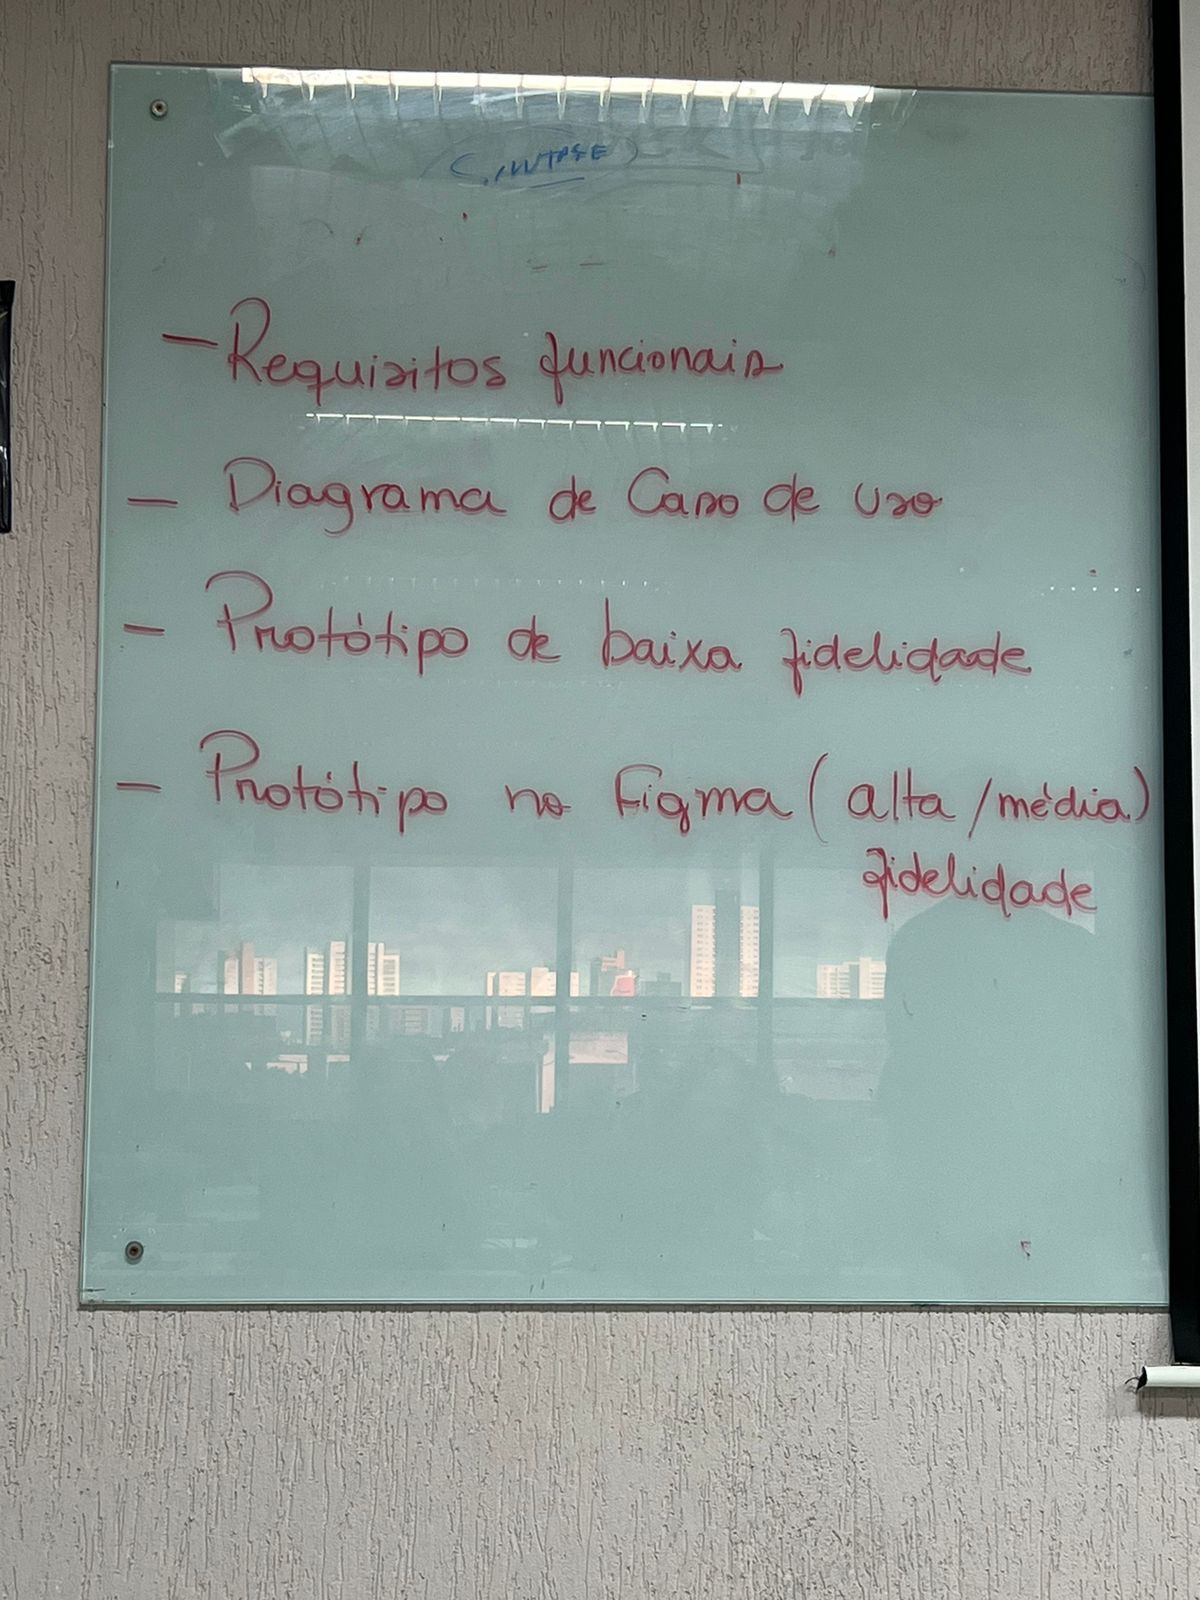 - Requisitos funcionais
- Diagrama de Caso de uso
- Protótipo de baixa fidelidade
- Protótipo no Figma (alta/média)
fidelidade